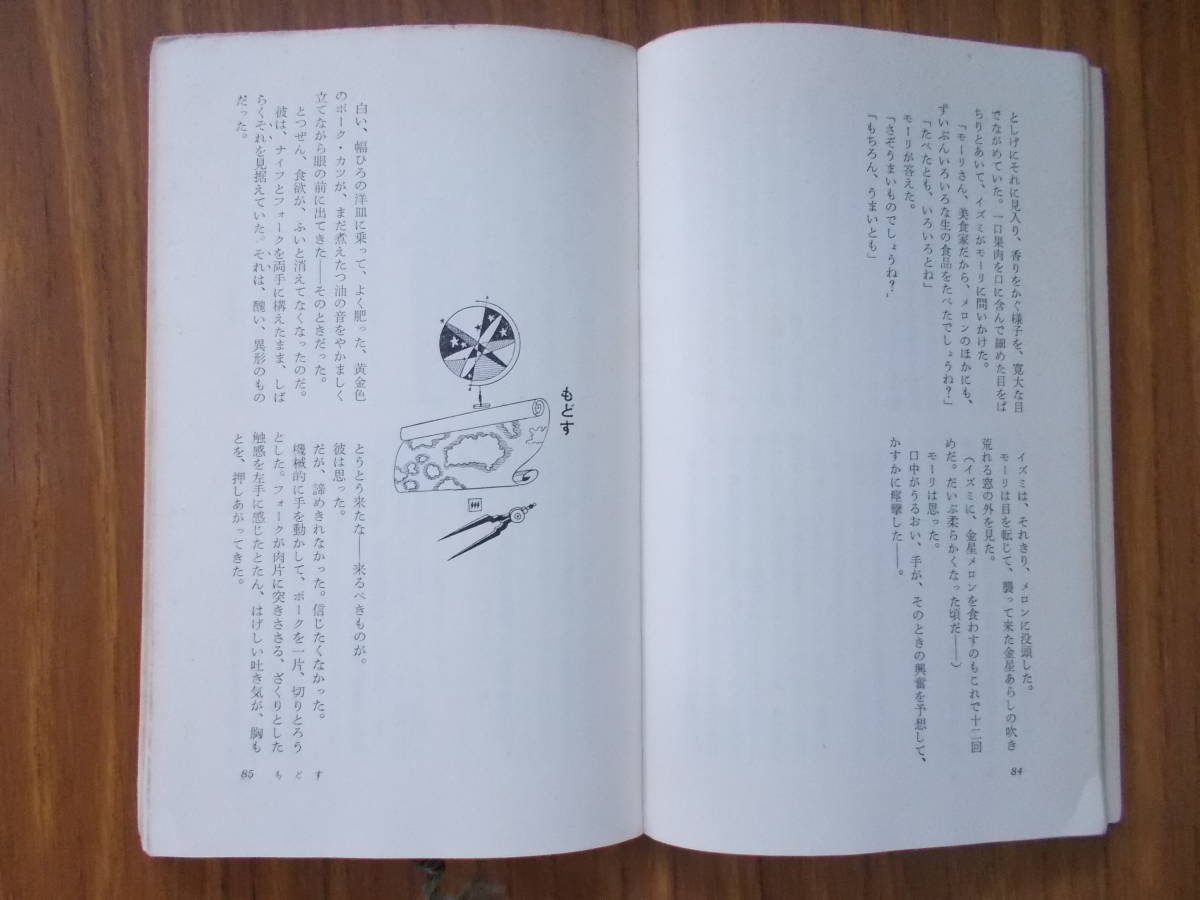 としげにそれに見入り、香りをかぐ様子を、寛大な目
でながめていた。一口果肉を口に含んで細めた目をぱ
ちりとあいて、イズミがモーリに問いかけた。
「モーリさん、美食家だから、メロンのほかにも、
ずいぶんいろいろな生の食品をたべたでしょうね?」
「たべたとも、いろいろとね」
モーリが答えた。
「さぞうまいものでしょうね?」
「もちろん、うまいとも」
イズミは、それきり、メロンに没頭した。
モーリは目を転じて、襲って来た金星あらしの吹き
荒れる窓の外を見た。
(イズミに、金星メロンを食わすのもこれで十二回
めだ。だいぶ柔らかくなった頃だ――)
モーリは思った。
口中がうるおい、手が、そのときの興奮を予想して、
かすかに痙攣した――。
84
もどす
白い、幅ひろの洋皿に乗って、よく肥った、黄金色
のポーク・カツが、まだ煮えたつ油の音をやかましく
立てながら眼の前に出てきた――そのときだった。
とつぜん、食欲が、ふいと消えてなくなったのだ。
彼は、ナイフとフォークを両手に構えたまま、しば
らくそれを見据えていた。それは、醜い、異形のもの
だった。
とうとう来たな――来るべきものが。
彼は思った。
だが、諦めきれなかった。信じたくなかった。
機械的に手を動かして、ポークを一片、切りとろう
とした。フォークが肉片に突きささる、ざくりとした
触感を左手に感じたとたん、はげしい吐き気が、胸も
とを、押しあがってきた。
85 もどす